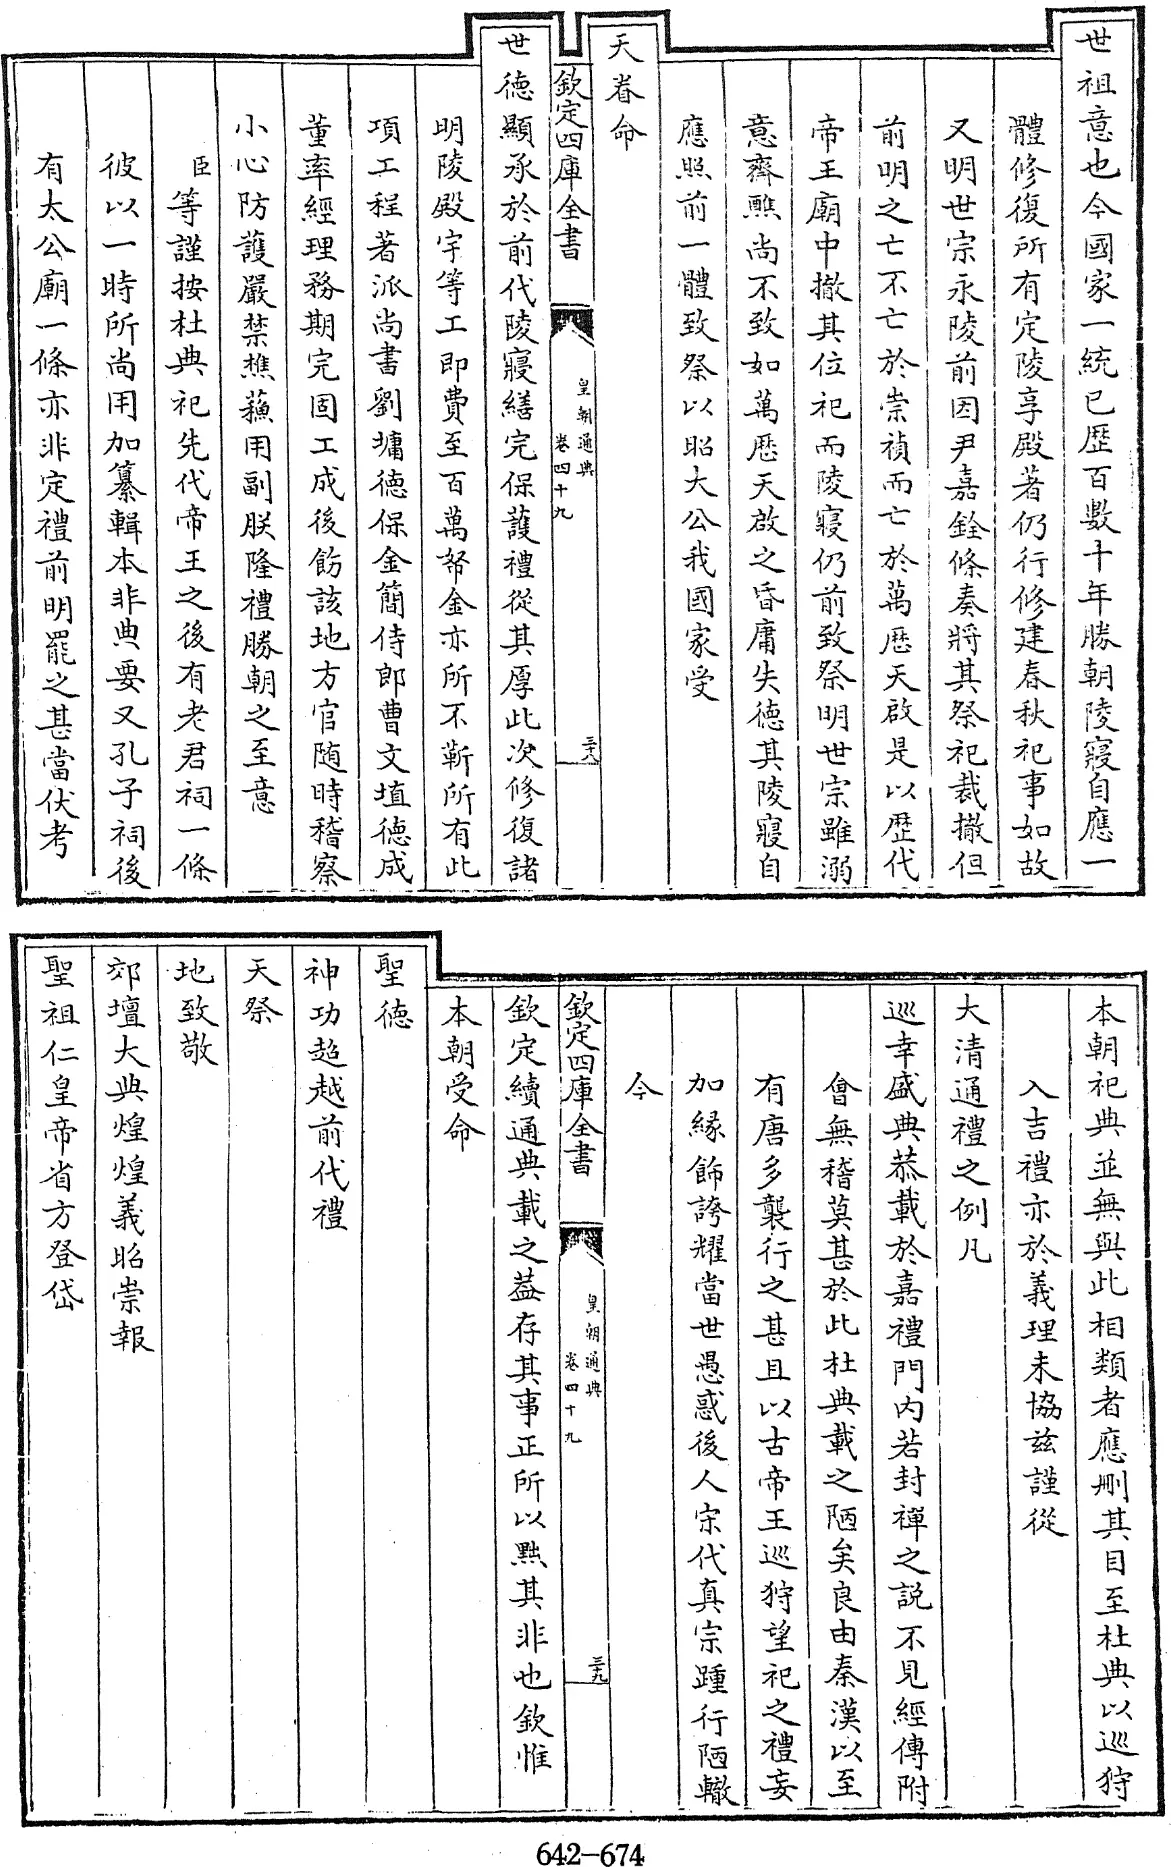 世祖意也今國家一統已歴百數十年勝朝陵寢自應一
體修復所有定陵享殿著仍行修建春秋祀事如故
又明世宗永陵前因尹嘉銓條奏將其祭祀裁撤但
前明之亡不亡於崇禎而亡於萬歴天啟是以歴代
帝王廟中撤其位祀而陵寢仍前致祭明世宗雖溺
意齋醮尚不致如萬歴天啟之昏庸失德其陵寢自
應照前一體致祭以昭大公我國家受
天眷命
欽定四庫全書
皇朝通典
卷四十九
三十八
世德顯承於前代陵寢繕完保護禮從其厚此次修復諸
明陵殿宇等工即費至百萬帑金亦所不靳所有此
項工程著派尚書劉墉德保金簡侍郎曹文埴德成
董率經理務期完固工成後飭該地方官隨時稽察
小心防護嚴禁樵蘓用副朕隆禮勝朝之至意
臣等謹按杜典祀先代帝王之後有老君祠一條
彼以一時所尚用加纂輯本非典要又孔子祠後
有太公廟一條亦非定禮前明罷之甚當伏考
本朝祀典並無與此相類者應刪其目至杜典以巡狩
入吉禮亦於義理未協兹謹從
大清通禮之例凡
巡幸盛典恭載於嘉禮門内若封禪之説不見經傳附
會無稽莫甚於此杜典載之陋矣良由秦漢以至
有唐多襲行之甚且以古帝王巡狩望祀之禮妄
加緣飾誇耀當世愚惑後人宋代真宗踵行陋轍
今
欽定四庫全書
皇朝通典
卷四十九
三十九
欽定續通典載之葢存其事正所以黜其非也欽惟
本朝受命
聖德
神功超越前代禮
天祭
地致敬
郊壇大典煌煌義昭崇報
聖祖仁皇帝省方登岱
642-674